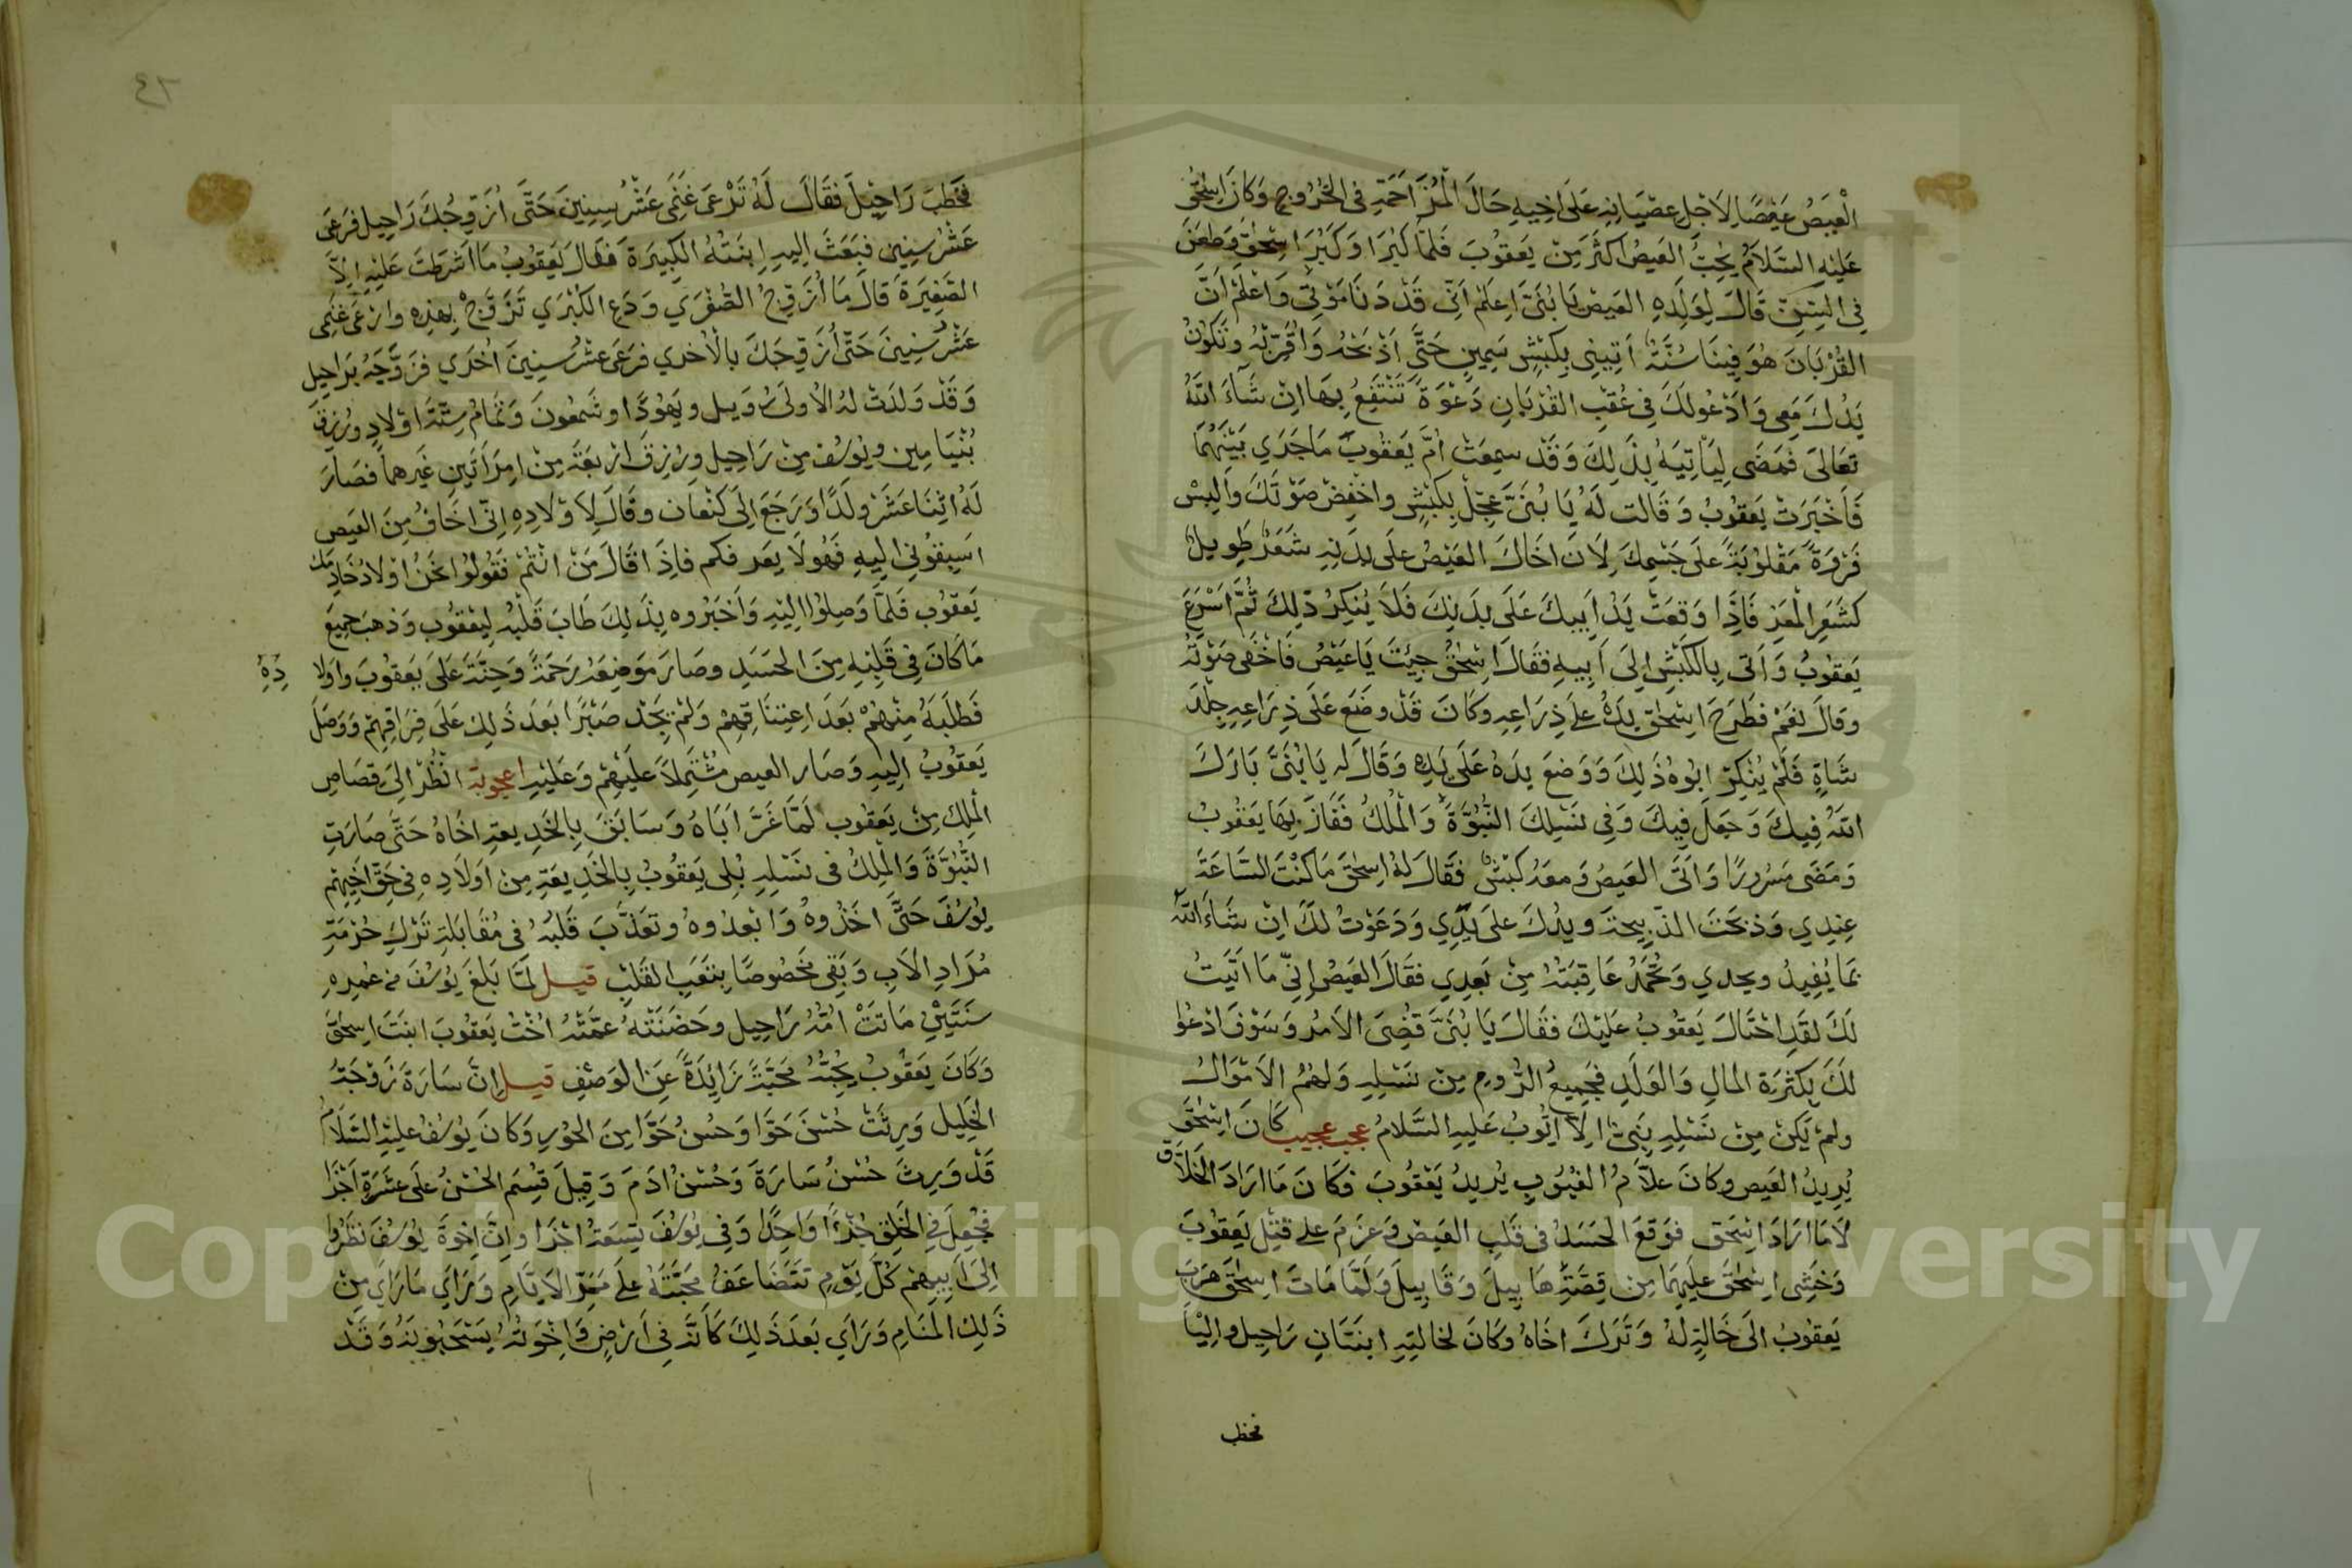 العِيصُ عَيْصًا لِاَجْلِ عصْيَانِهِ عَلَى اَخِيهِ حَالَ الْمُزَاحَمَةِ فى الخُرُوجِ وَكَانَ اِسْحٰقُ
عَلَيْهِ السَّلَامُ يُحِبُّ العَيصُ اكثَرَ مِنْ يَعقوُبَ فَلَمّا كَبُرَا وَكَبُرَ اِسْحٰق وَطعَنَ
فِى السِّنِّ قَالَ لِوَلَدِهِ العَيصْ يَا بُنَىَّ اِعلَمْ اَنّى قَدْ دَنَا مَوْتِى وَاعْلَمْ اَنَّ
القُرْبَانَ هُوَ فِينَا سُنَّةٌ اَتِينِى بِكَبْشٍ سَمِينٍ حَتَّى اَذْبَحُهُ وَاُقَرِّبُهُ وتَكوُنُ
يَدُكَ مَعِى وَادَعُولَكَ فِى عُقْبِ القُرْبَانِ دَعْوَةً تَنْتَفِعُ بِهَا اِنْ شَآءَ اللهُ
تعَالىَ فمَضَى لِيَاْتِيَهُ بِذَلِكَ وَقَدْ سمِعَتْ اُمّ يَعقوُبَ مَاجَرَي بَيْنَهُمَا
فَاَخْبَرَتْ يَعقوُبُ وَقَالت لَهُ يَا بُنَىَّ عجِّلْ بِكَبْشٍ واخْفِضْ صَوْتَكَ وَاَلبِسْ
فَرْوَةً مَقْلوُبَةً عَلَى جَسْمِكَ لِاَنَ اخَاكَ العَيْصُ عَلى بدَنِهِ شَعَرٌ طَوِيلٌ
كشَعَرِ الْمَعَزِ فَاِذَا وَقعَتْ يَدُ اَبِيكَ عَلَى بدَنِكَ فَلَا يُنكِرُ ذٰلِكَ ثُمَّ اَسْرَعَ
يَعقوُبُ وَاَتى بِالكَبْشِ اِلىَ اَبِيهِ فقَالَ اِسْحٰقُ جِيْتَ يَاعَيْصُ فَاَخْفَى صَوْتَهُ
وقالَ نعَمْ فطَرَحَ اِسْحٰقُ يدَهُ علَى ذِرَاعِهِ وكَانَ قَدْ وضَعَ عَلَى ذِرَاعِهِ جِلْدَ
شَاةٍ فَلَمْ يُنْكِرْ ابوُهُ ذَلِكَ وَوَضعَ يدَهُ عَلَى يَدِهِ وَقَالَ لَه يَا بُنَىَّ بَارَكَ
اللهُ فِيكَ وَجَعَلَ فِيكَ وَفِى نَسْلِكَ النُّبُوَّةَ وَالْمُلْكُ فَفَازَ بِهَا يَعقُوبُ
وَمَضَى مَسْرُورًا وَاَتَى العَيصُ وَمعَهُ كبْشٌ فقَالَ لَهُ اِسحٰقَ مَا كنْتَ السَّاعَةَ
عِندِي وَذبحَتَ الذّبيحَةَ ويدُكَ علَى يدِي وَدَعَوْتُ لكَ اِنْ شَاءَ اللهُ
بمَا يُفِيدُ ويجدي وَتُحْمَدُ عَاقِبَتَهُ مِنْ بَعدِي فقَالَ العَيصُ اِنّى مَا اَتَيْتُ
لَكَ لقَدِ احْتَالَ يَعقوُبُ عَلَيْكَ فقَالَ يَا بُنَىَّ قُضِىَ الاَمرُ وَسَوْفَ اَدْعُوا
لَكَ بِكثرَةِ المالِ وَالوَلَدِ فجَمِيعُ الرُّومِ مِنْ نَسْلِهِ وَلَهُمُ الاَمْوَالُ
ولَمْ يَكنْ مِنْ نَسْلِهِ نَبِىٌّ اِلاَّ اَيّوُبُ عَلَيهِ السَّلامُ عجب عجيب كَانَ اِسْحٰق
يُرِيدُ العَيصَ وكَانَ علاَّمُ الغيُوُبِ يُرِيدُ يَعْقوُبَ فكَانَ مَا ارَادَ الخَلَّاق
لَا مَا ارَادَ اِسْحٰق فوَقعَ الحَسَدُ فى قَلْبِ العَيصْ وَعزَمَ علَى قَتْلِ يَعقوُبَ
وَخَشِى اِسْحٰقَ علَيهِمَا مِن قِصَّةِ هَابِيلَ وَقَابِيلَ وَلَمَّا مَاتَ اِسْحٰق هَرَبَ
يَعقوُبُ الَى خَالَةٍ لهُ وَتَرَكَ اخَاهُ وكَانَ لخالَتِهِ ابنَتَانِ رَاحِيل وَاِليْا
فخطب
٤٢
فخَطَبَ رَاحِيْلَ فقَالَ لَهُ تَرْعَى غَنَمِى عَشْرُ سِنِينَ حَتَّى اُزَوِّجُكَ رَاحِيل فرَعَى
عَشْرُ سِنِين فبَعَثَ اِليهِ اِبنَتُهُ الكَبِيرَةَ فقَالَ يَعقوُبُ مَا اشرَطتَ عَلَيْهِ اِلاَّ
الصَّغِيَرةَ قالَ مَا اُزَوِّجُ الصُّغْرَي وَدَعِ الكُبْرَي تَزَوَّجْ بِهذِهِ وارْعَى غنَمِى
عَشْرُ سنِينَ حَتّى اُزَوِّجَكَ بالاُخرى فرَعَى عَشْرُ سِنِينَ اُخْرَي فزَوَّجَهُ برَاحِيل
وَقَدْ وَلدَتْ لهُ الاُولىَ رُوَبيل ويَهُوُدَا وشَمعُونَ وَتمَامُ سِتَّةَ اَوْلَادٍ ورُزِقَ
بُنْيَامِين ويُوُسُف مِنْ رَاحِيل ورُزِقَ ارْبعَةً مِنْ امرَاَتَينِ غَيرهما فصَارَ
لَهُ اثِنَا عَشَرَ ولَدًا وَرَجَعَ اِلَى كَنْعَان وقَالَ لِاَوْلَادِهِ اِنّى اخَافُ مِنَ العَيص
اسْبِقوُنى اِليهِ فَهُو لَا يعَرفكم فاِذَا قَالَ مَنْ انْتُمْ فَقُولُوا نَحْنُ اَوْلَادُ خَادِمكَ
يَعقوُب فَلَمَّا وَصِلُوا اِليْهِ وَاَخبَرُوه بِذَلِكَ طَابَ قَلْبُهُ لِيَعْقوُبَ وَذهبَ جَميَع
مَا كَانَ فِى قَلْبِهِ مِنَ الحَسَدِ وصَارَ مَوضِعَهُ رَحَمَةً وَحِنَّةً عَلَى يَعقوُبَ واَولَا دِهِ
فَطلَبَهُ مِنْهُمْ بَعدَ اعِتِنَاقِهِمْ وَلَمْ يَجِدْ صَبْرًا بَعدَ ذَلِكَ عَلَى فِرَاقِهِمْ وَوَصَلَ
يَعقوُبُ اِليهِ وَصَار العيص مُشْتَمِلاً عَلَيهِمْ وَعَلَيْهِ اعجوبة انْظُرْ اِلىَ قصَاصِ
الْمَلِكِ مِنْ يَعقوُب لَمَّا غَرَّ ابَاهُ وَسَابَقَ بِالخَدِيعةِ اخَاهُ حَتَّى صَارَتِ
النُّبُوَّةَ وَالْمُلِكُ فى نَسْلِهِ بُلِى يَعقوُبُ بِالخَدِيعَةِ مِنْ اَولَادِهِ فِى حَقِّ اَخِيهِمْ
يوُسُفَ حَتَّى اخَذُوهُ وَابْعدُوهُ وتعَذَّبَ قَلْبُهُ فى مُقَابلَةِ تَرْكِ حُرْمَةِ
مُرَادِ الاَبِ وَبَقِىَ مخَصُوصًا بِتعَبِ القَلْبِ قيل لَمَّا بَلغَ يوُسُفَ مِنْ عُمرِهِ
سَنَتَيْنِ مَاتتْ اُمُّهُ رَاحِيل وحَضَنَتْهُ عمَّتُهُ اُخْتُ يَعقوُبَ ابنَتَ اِسحٰقَ
وَكَانَ يَعقوُبُ يُحِبُّهُ مَحَبَّةً زَايِدَةً عَنِ الوَصْفِ قيل اِنَّ سَارَةَ زَوْجَةُ
الخَلِيل وَرِثَتْ حُسْنَ حَوَّا وَحُسْنُ حَوَّا مِنَ الحُورِ وَكَانَ يوُسُفُ عليْهِ السَّلَامُ
قَدْ وَرِثَ حُسْنُ سَارَةَ وَحُسْنُ ادَمَ وَقِيلَ قُسِمَ الحُسْنُ عَلَى عَشَرَةِ اَجْزَا
فجُعِلَ فِى الخَلْقِ جُزْءًا وَاحِدًا وَفِى يُوسُفَ تِسعَةُ اجْزَا وَاِنَّ اِخوَةَ يوُسُفَ نظَرُوا
اِلىَ اَبِيهِمْ كُلَّ يَوْمٍ تتَضَاعَفُ مَحبَّتَهُ علَى مَمَرِّ الاَيَّامِ وَرَاَي مَا رَاَي مِنْ
ذَلِكَ الْمَنَامِ وَرَاَي بَعدَ ذَلِكَ كَاَنَّهُ فِى اَرْضٍ وَاِخْوَتُهُ يَسْتَحِبُّونَهُ وَقَدْ
Copyright © King Saud University